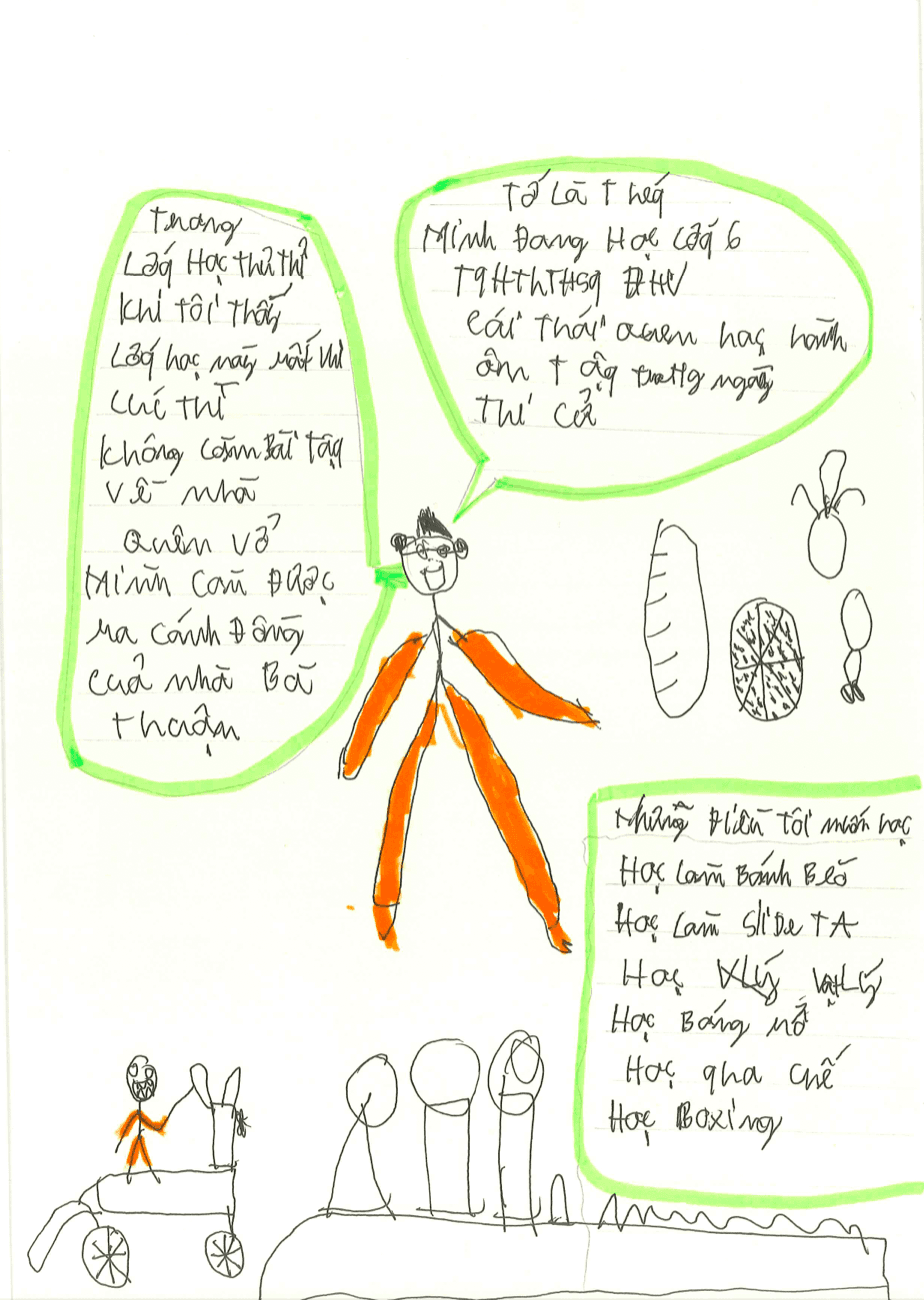 Tớ Là Thép
Mình Đang Học Lớp 6
TQHThTHSP ĐHV
Cái Thói quen học hành
ôn Tập trong ngày
Thi Cử
Trong
Lớp Học thú thì
Khi Tôi Thấy
Lớp học này rất Vui
Cực Thì
Không Còn Bài Tập
Về nhà
quên vở
Mình Còn Được
ra Cánh Đồng
của nhà Bà
Thuận
Những Điều Tôi muốn học
Học Làm Bánh Bèo
Học Làm Slide TA
Học Vật Lý
Học Bóng rổ
Học pha chế
Học Boxing